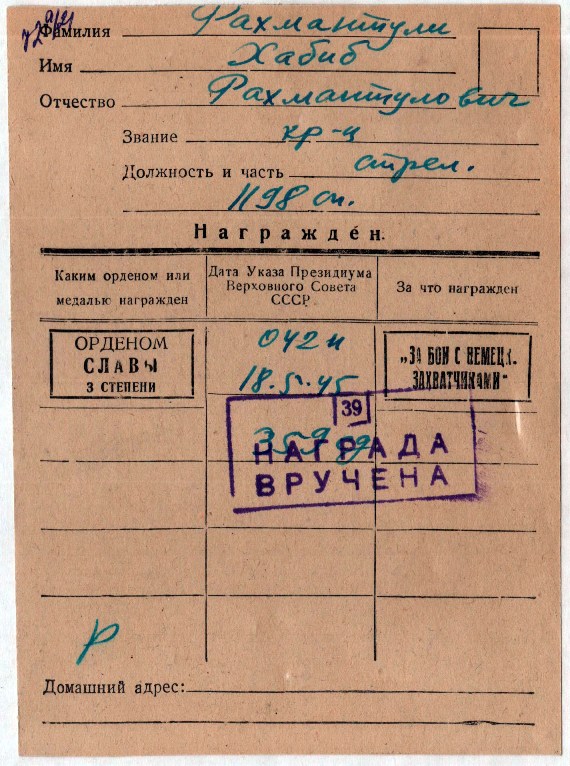 Фамилия Рахмантули
Имя Хабиб
Отчество Рахмантулович
Звание кр-ц
Должность и часть стрел.
1198 сп.
Награждён:
Каким орденом или медалью награжден
Дата Указа Президиума Верховного Совета СССР
За что награжден
ОРДЕНОМ
СЛАВЫ
3 СТЕПЕНИ
042 н
18.5.45
„ЗА БОИ С НЕМЕЦК.
ЗАХВАТЧИКАМИ"
39
НАГРАДА
ВРУЧЕНА
р
Домашний адрес: